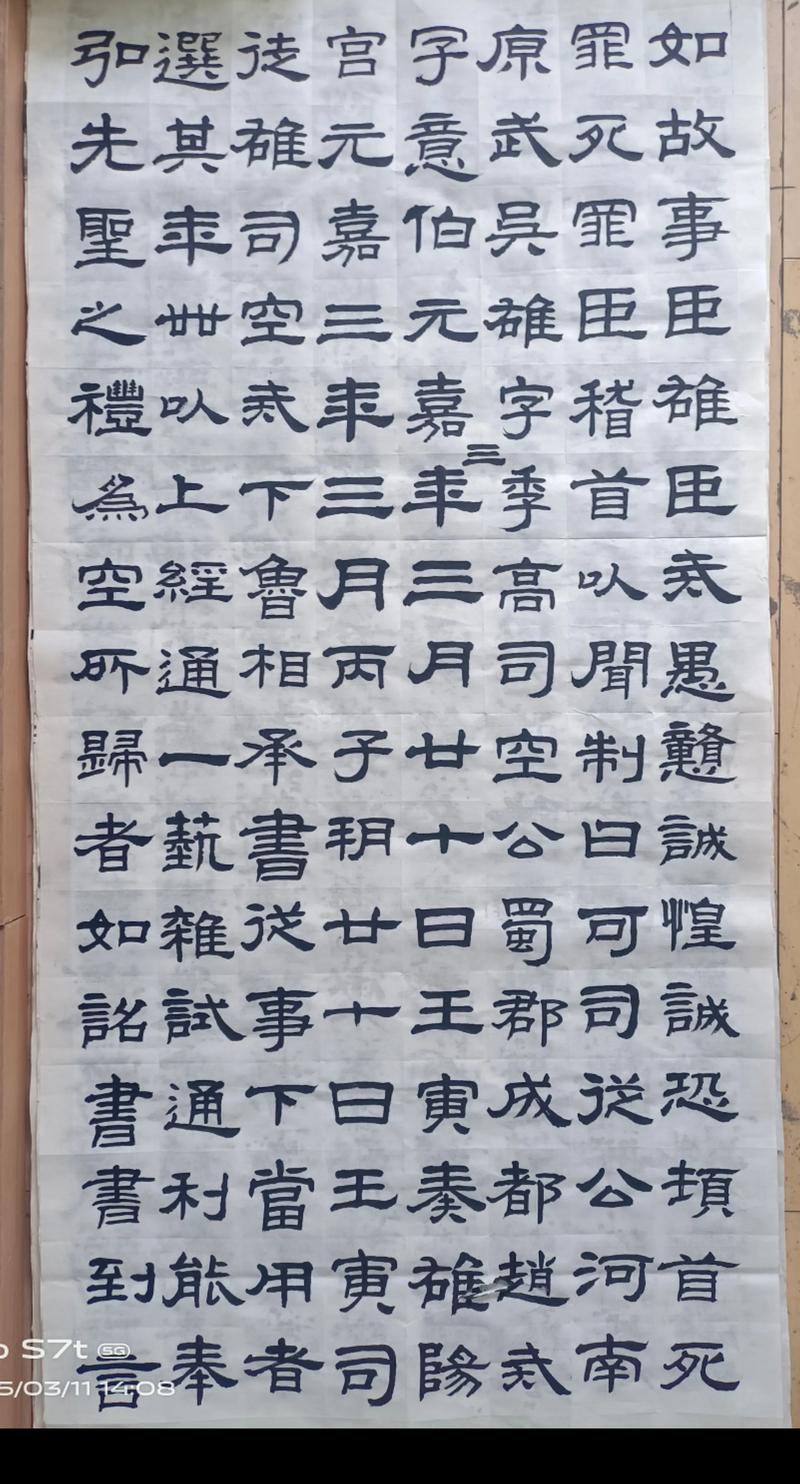 如故事臣雄臣戒愚戇誠惶誠恐頓首死
罪死罪臣稽首以聞制曰可司從公河南
原武吳雄字季高司空公蜀郡成都趙戒
字意伯元嘉三年三月廿七日壬寅奏雒陽
宮元嘉三年三月丙子朔廿七日壬寅司
徒雄司空戒下魯相承書從事下當用者
選其年卌以上經通一藝雜試通利能奉
弘先聖之禮為空所歸者如詔書書到言
o S7t 5G
5/03/11 14:08